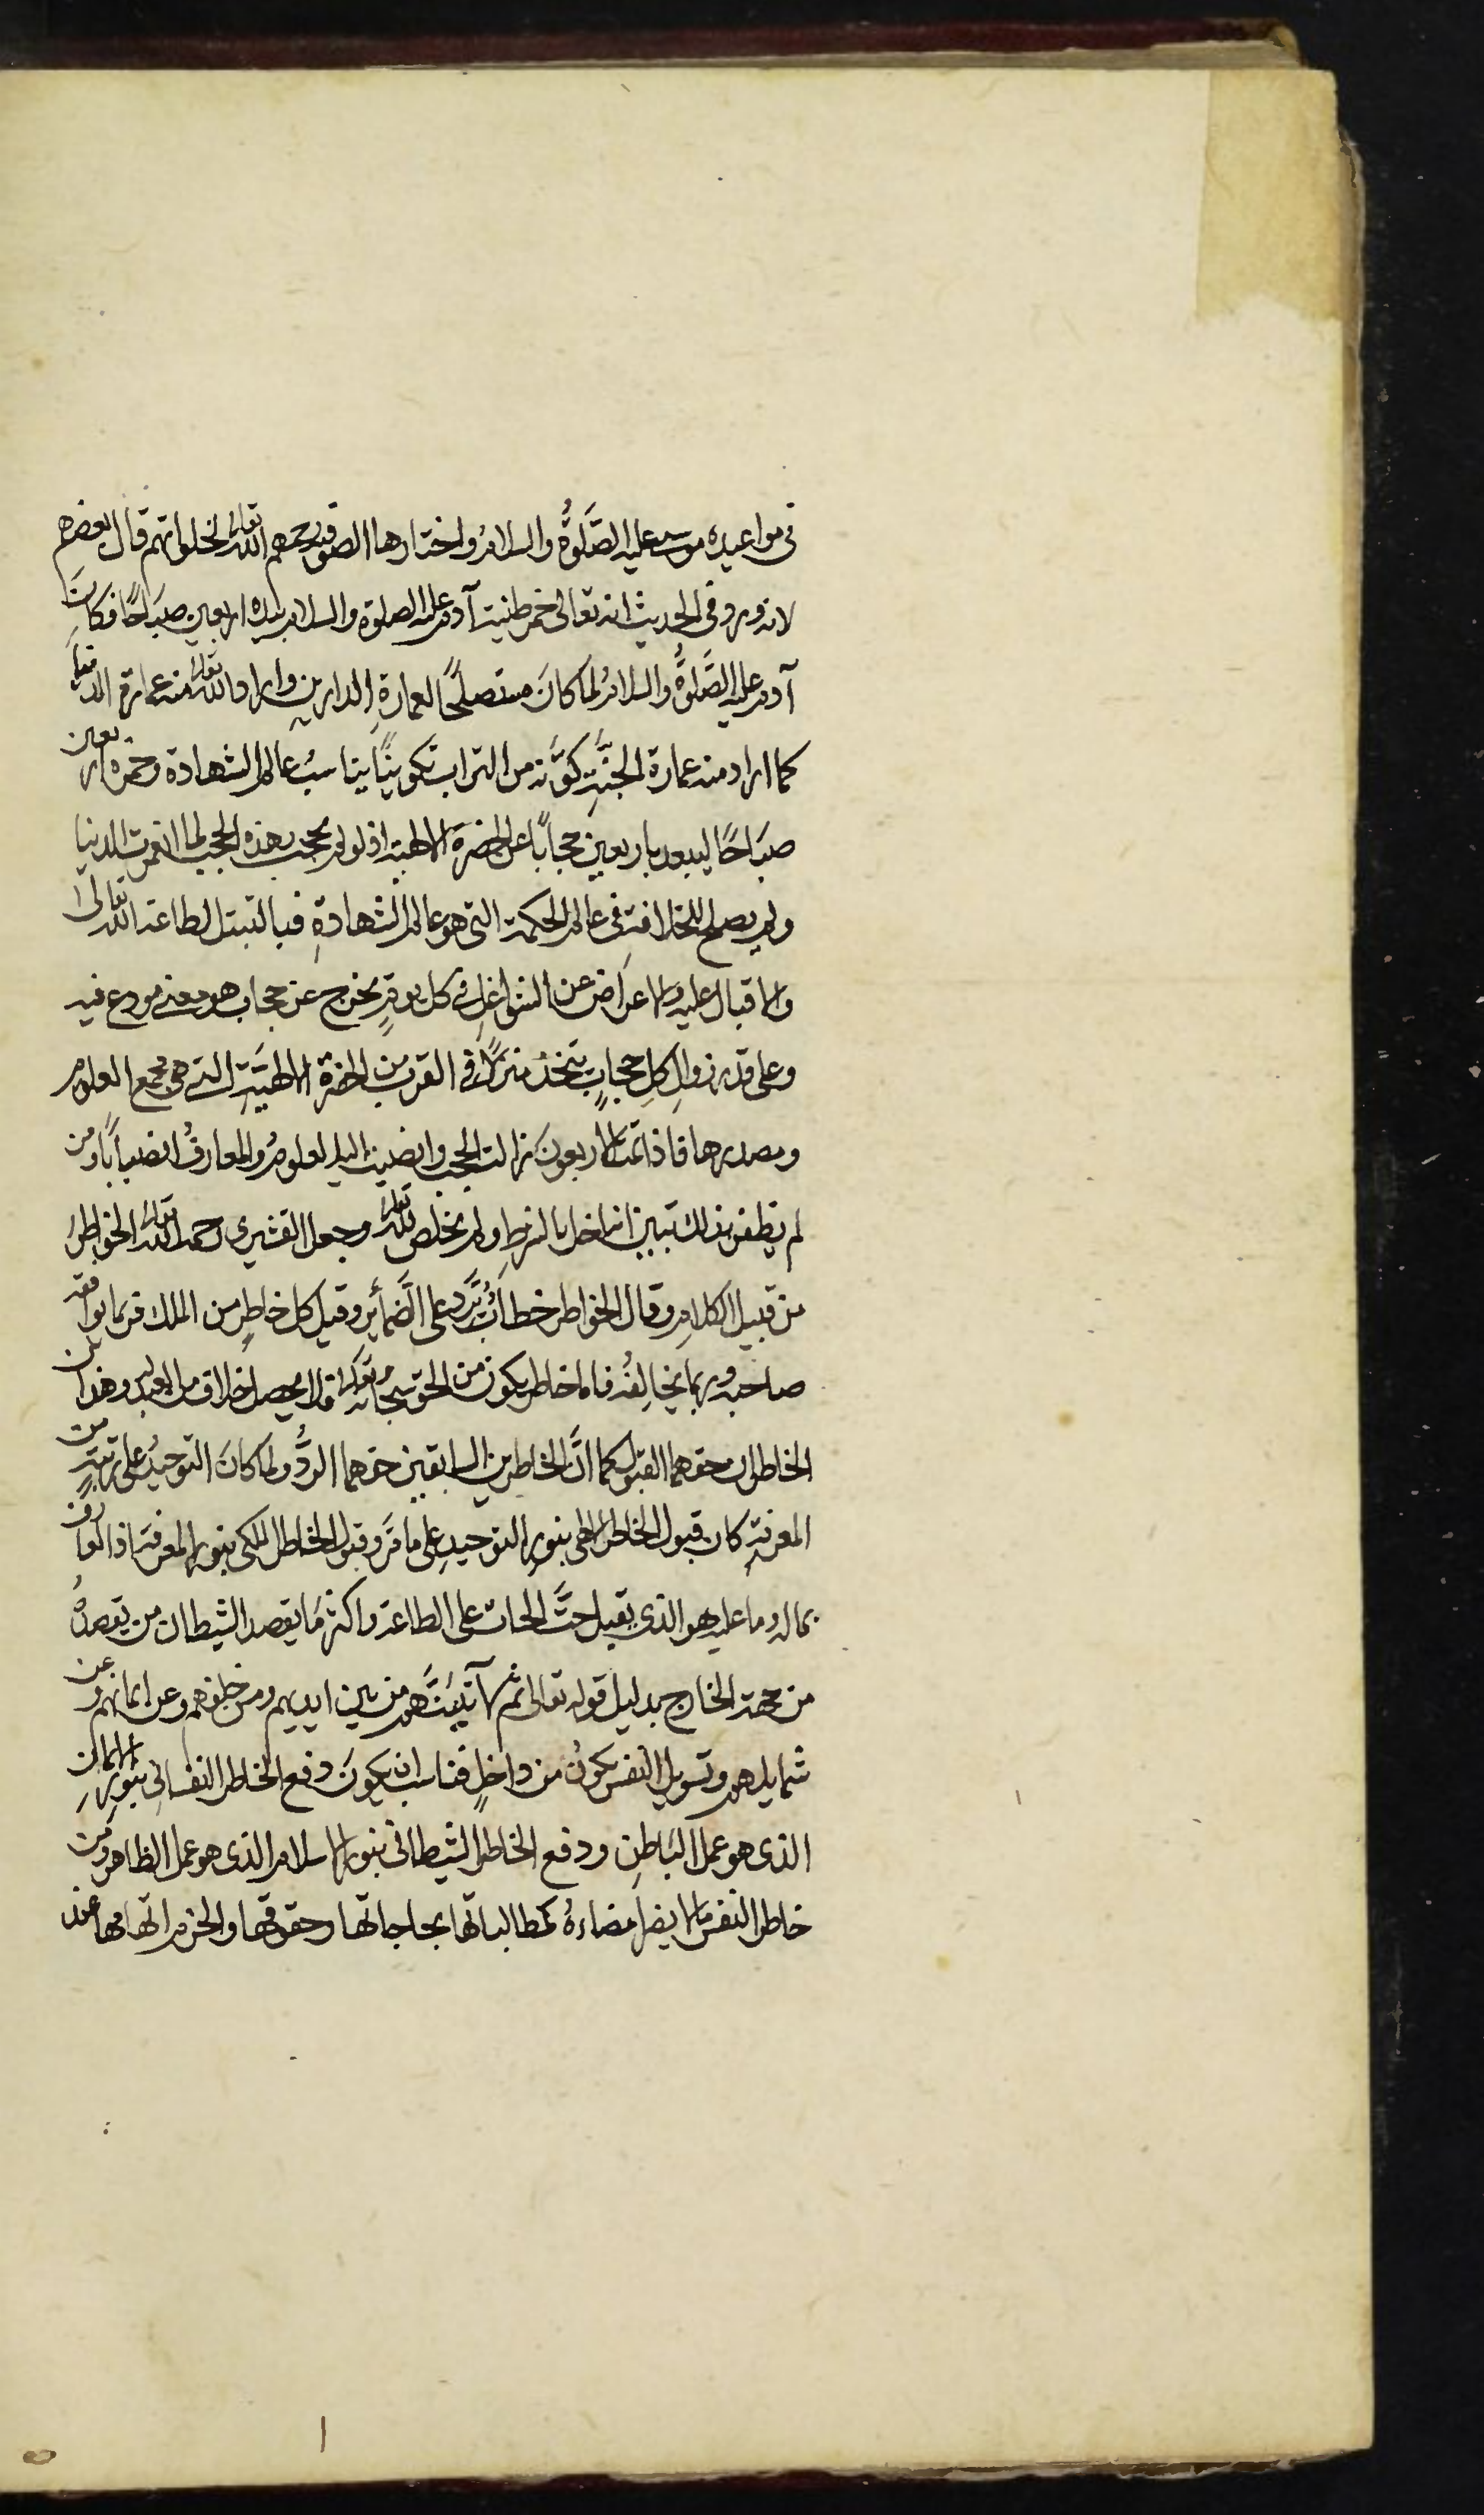 فى مواعيده موسى عليه الصَّلوةُ والسلامُ واختارها الصوفية رحمهم الله تعالى لخلواتهم قال بعضهم
لانه ورد فى الحديث انه تعالى خمر طنية آدم عليه الصلوة والسلام بيده اربعين صبَاحًا فكانَ
آدم عليه الصَّلوةُ والسلامُ لما كانَ مستصلحًا لعمارةِ الدارين واراد الله تعالى منه عمارة الدنيا
كما اراد منه عمارة الجنَّةِ كوَّنه من التراب تكوينًا يناسبُ عالم الشهادة وخمره اربعين
صبَاحًا ليبعد باربعين حجابًا عن الحضرةِ الالهية اذ لو لم يحجب بهذه الحجب لما انغمرت الدنيا
ولم يصلح للخلافة فى عالم الحكمة التى هو عالم الشهادةِ فبالتبتل لطاعة الله تعالى
والاقبال عليه والاعراض عن الشواغل فى كل يوم يخرج عن حجاب هو معنى مودع فيه
وعلى قدر زوالِ كلِ حجابٍ يتخذ منزلًا فى القرب من الحضرة الالهيَّةِ التى هى مجمع العلوم
ومصدرها فاذا تمت الاربعونَ زالت الحجب وانصبت اليه العلومُ والمعارفُ انصبابًا ومن
لم يظفر بذلك تبين انه اخل بالشرطِ ولم يخلص لله تعالى وجعل القشيرى رحمه الله تعالى الخواطر
من قبيل الكلامِ وقال الخواطر خطابٌ تردُ على الضَّمائرِ وقيل كل خاطرٍ من الملك فربما يوافقه
صاحبه وربما يخالِفُه فاما خاطر يكون من الحق سبحانه تعالى فلا يحصل خلاف من العبد وهذان
الخاطران حقهما القبول كما انَّ الخاطرين السابقين حقهما الردُّ ولما كانَ التوحيدُ على مرتبةٍ من
المعرفةِ كان قبول الخاطر الالهى بنورِ التوحيدِ على ما مَر وقبول الخاطر الملكى بنور المعرفة اذ العارف
بما له وما عليه هو الذى يقبل حثَّ الحاث على الطاعة واكثر مَا يقصد الشيطان من يقصدُه
من جهة الخارج بدليل قوله تعالى ثم لآتينَّهم من بين ايديهم ومن خلفهم وعن ايمانهم وعن
شمايلهم وتسويل النفس يكونُ من داخلٍ فناسب ان يكونَ دفع الخاطر النفسانى بنورِ الايمان
الذى هو عمل البَاطنِ ودفع الخاطر الشيطانى بنور الاسلام الذى هو عمل الظاهر ومن
خاطر النفس ما لا يضر امضاءهُ كمطالباتها بحاجاتها وحقوقها والحزم اتهامها عند